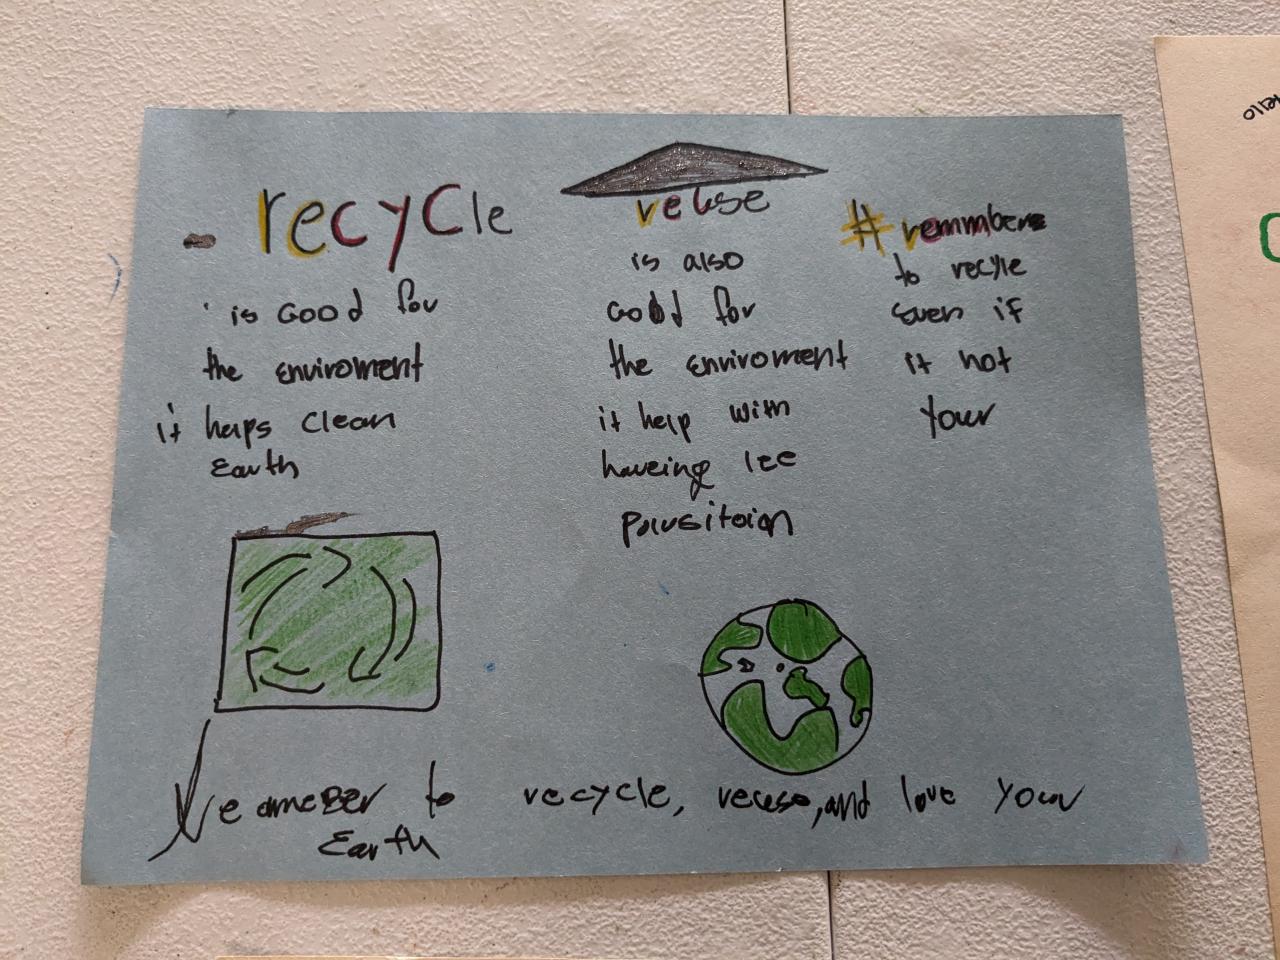 recycle
is Good for
the enviroment
it helps clean
Earth
reuse
is also
Good for
the enviroment
it help with
haveing lee
polusitoign
# remmber
to recyle
even if
it not
your
Reameber to recycle, reuse, and love your
Earth
Hello